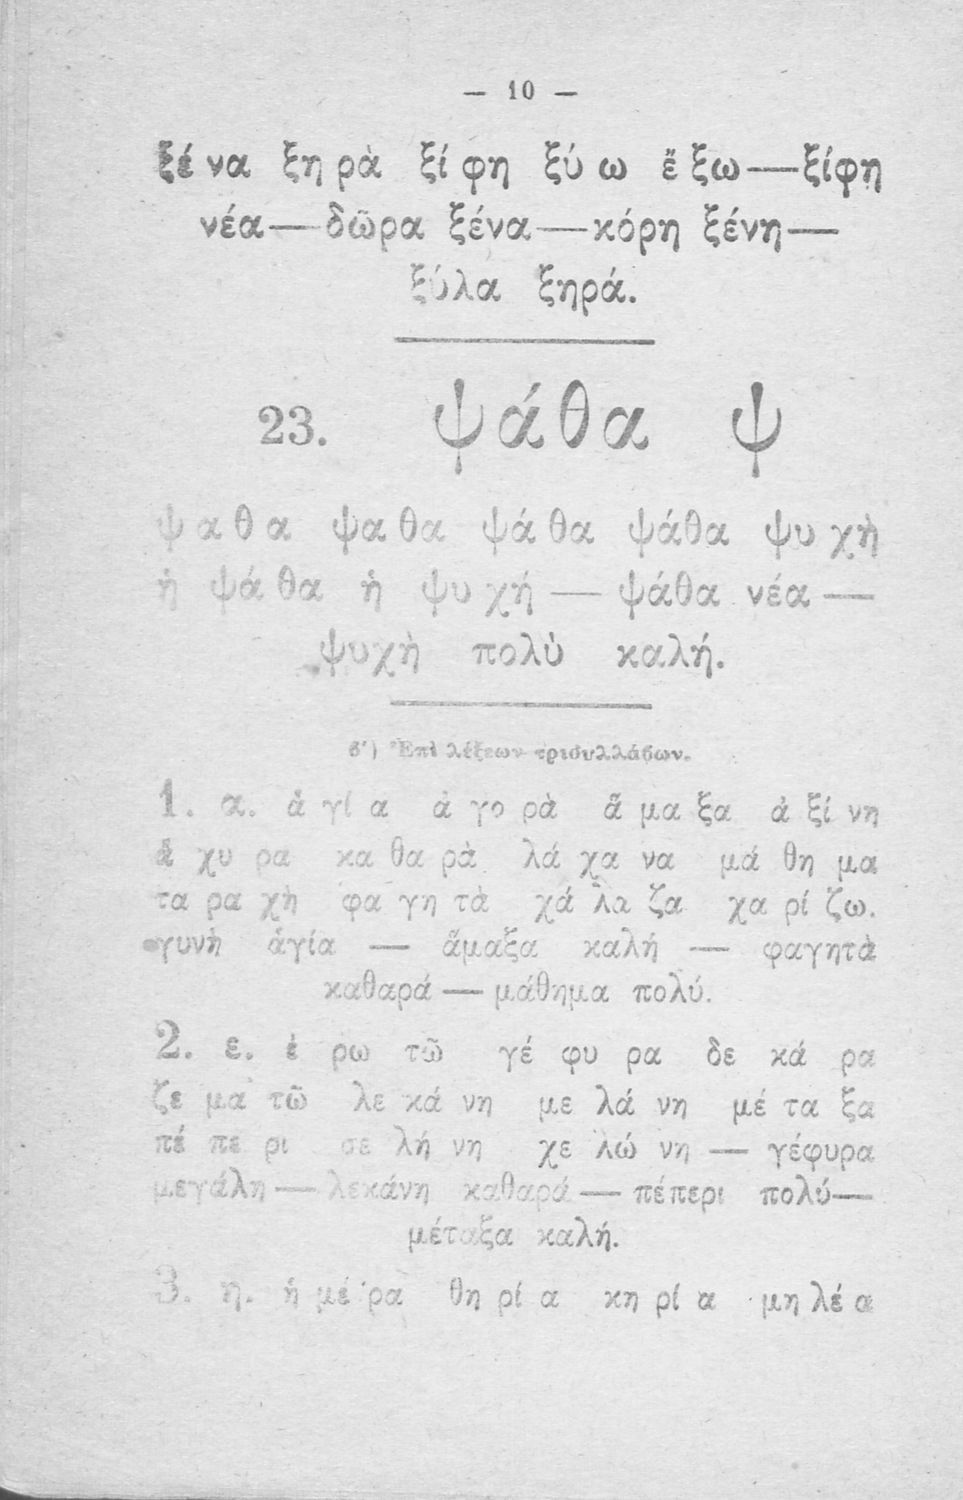 — 10 —
ξέ να ξη ρὰ ξί φη ξύ ω ἔ ξω—ξίφη
νέα—δῶρα ξένα—κόρη ξένη—
ξύλα ξηρά.
23. ψάθα ψ
ψ α θ α ψα θα ψά θα ψάθα ψυ χὴ
ἡ ψά θα ἡ ψυ χή — ψάθα νέα —
ψυχὴ πολὺ καλή.
β') Ἐπὶ λέξεων τρισυλλάβων.
1. α. ἁ γί α ἀ γο ρὰ ἅ μα ξα ἀ ξί νη
ἄ χυ ρα κα θα ρὰ λά χα να μά θη μα
τα ρα χὴ φα γη τὰ χά λα ζα χα ρί ζω.
γυνὴ ἁγία — ἅμαξα καλή — φαγητὰ
καθαρά — μάθημα πολύ.
2. ε. ἐ ρω τῶ γέ φυ ρα δε κά ρα
ζε μα τῶ λε κά νη με λά νη μέ τα ξα
πέ πε ρι σε λή νη χε λώ νη — γέφυρα
μεγάλη — λεκάνη καθαρά — πέπερι πολύ—
μέταξα καλή.
3. η. ἡ μέ ρα θη ρί α κη ρί α μη λέ α